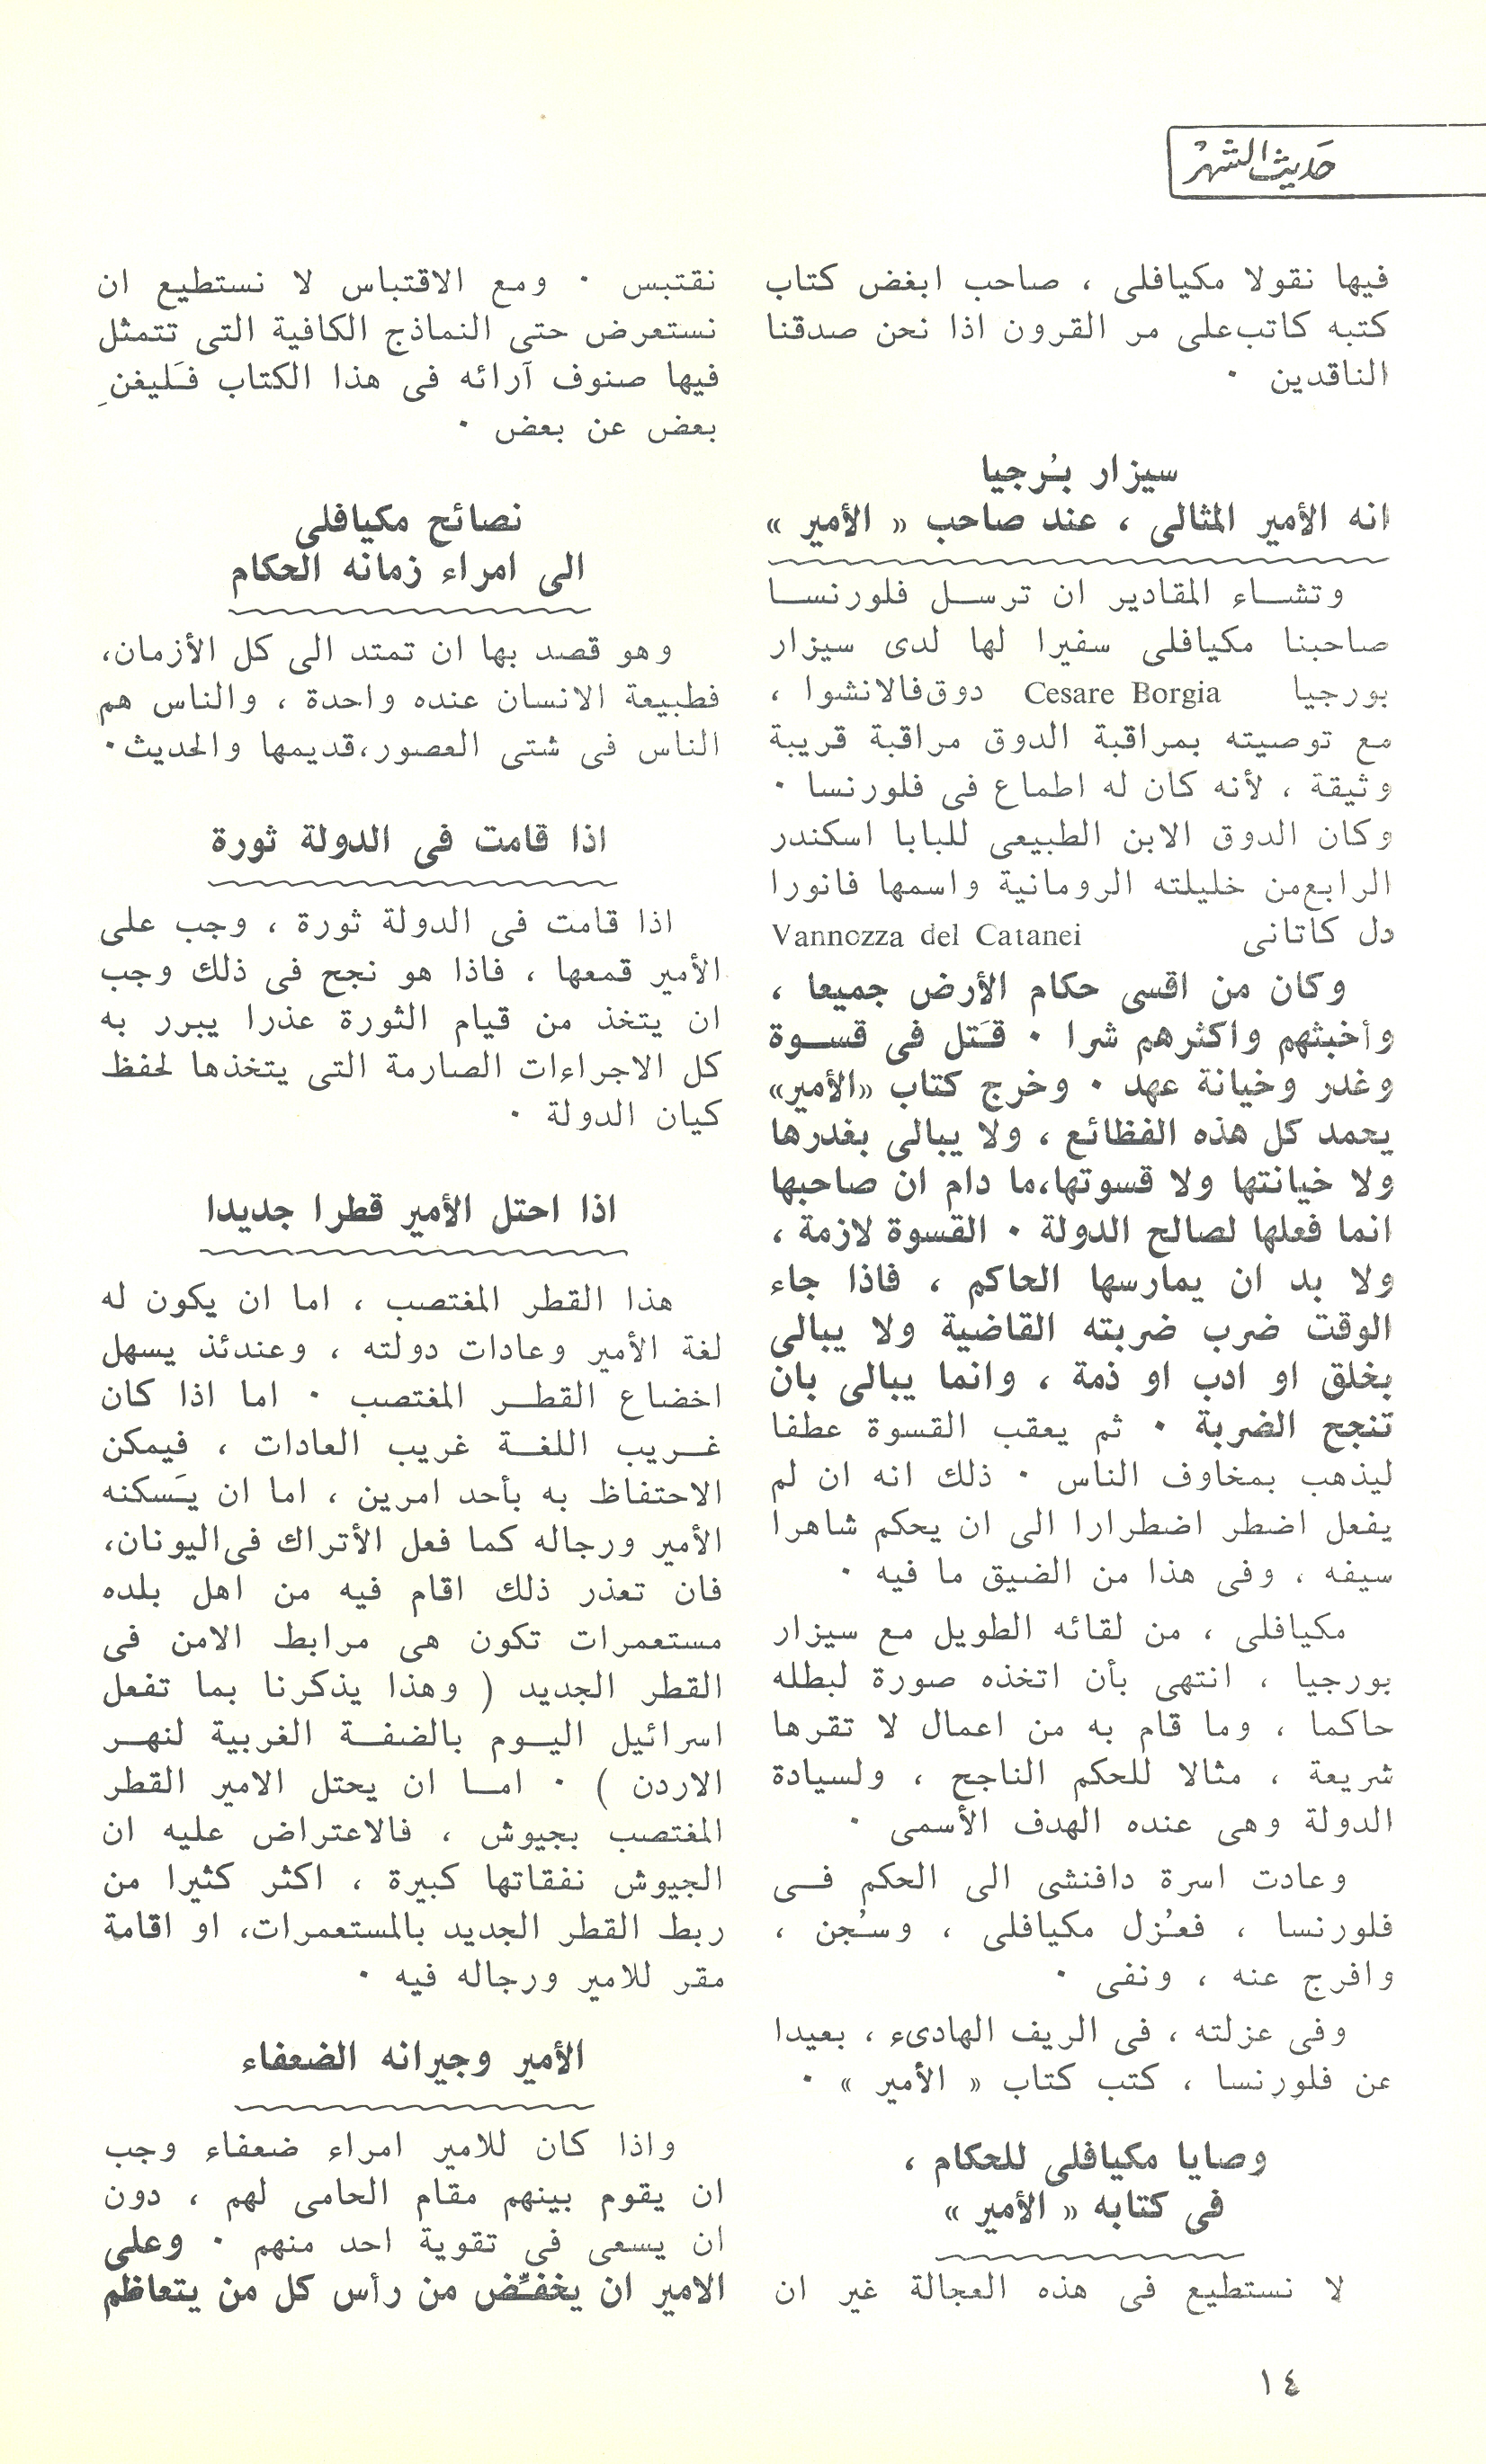 حديث الشهر
فيها نقولا مكيافلى ، صاحب ابغض كتاب
كتبه كاتب على مر القرون اذا نحن صدقنا
الناقدين ٠
سيزار بُرجيا
انه الأمير المثالى ، عند صاحب « الأمير »
وتشاء المقادير ان ترسل فلورنسا
صاحبنا مكيافلى سفيرا لها لدى سيزار
بورجيا Cesare Borgia دوق فالانشوا ،
مع توصيته بمراقبة الدوق مراقبة قريبة
وثيقة ، لأنه كان له اطماع فى فلورنسا ٠
وكان الدوق الابن الطبيعى للبابا اسكندر
الرابع من خليلته الرومانية واسمها فانورا
دل كاتانى Vannozza del Catanei
وكان من اقسى حكام الأرض جميعا ،
وأخبثهم واكثرهم شرا ٠ قَتل فى قسوة
وغدر وخيانة عهد ٠ وخرج كتاب «الأمير»
يحمد كل هذه الفظائع ، ولا يبالى بغدرها
ولا خيانتها ولا قسوتها، ما دام ان صاحبها
انما فعلها لصالح الدولة ٠ القسوة لازمة ،
ولا بد ان يمارسها الحاكم ، فاذا جاء
الوقت ضرب ضربته القاضية ولا يبالى
بخلق او ادب او ذمة ، وانما يبالى بان
تنجح الضربة ٠ ثم يعقب القسوة عطفا
ليذهب بمخاوف الناس ٠ ذلك انه ان لم
يفعل اضطر اضطرارا الى ان يحكم شاهرا
سيفه ، وفى هذا من الضيق ما فيه ٠
مكيافلى ، من لقائه الطويل مع سيزار
بورجيا ، انتهى بأن اتخذه صورة لبطله
حاكما ، وما قام به من اعمال لا تقرها
شريعة ، مثالا للحكم الناجح ، ولسيادة
الدولة وهى عنده الهدف الأسمى ٠
وعادت اسرة دافنشى الى الحكم فى
فلورنسا ، فعُزل مكيافلى ، وسُجن ،
وافرج عنه ، ونفى ٠
وفى عزلته ، فى الريف الهادىء ، بعيدا
عن فلورنسا ، كتب كتاب « الأمير » ٠
وصايا مكيافلى للحكام ،
فى كتابه « الأمير »
لا نستطيع فى هذه العجالة غير ان
نقتبس ٠ ومع الاقتباس لا نستطيع ان
نستعرض حتى النماذج الكافية التى تتمثل
فيها صنوف آرائه فى هذا الكتاب فَليغنِ
بعض عن بعض ٠
نصائح مكيافلى
الى امراء زمانه الحكام
وهو قصد بها ان تمتد الى كل الأزمان،
فطبيعة الانسان عنده واحدة ، والناس هم
الناس فى شتى العصور، قديمها والحديث٠
اذا قامت فى الدولة ثورة
اذا قامت فى الدولة ثورة ، وجب على
الأمير قمعها ، فاذا هو نجح فى ذلك وجب
ان يتخذ من قيام الثورة عذرا يبرر به
كل الاجراءات الصارمة التى يتخذها لحفظ
كيان الدولة ٠
اذا احتل الأمير قطرا جديدا
هذا القطر المغتصب ، اما ان يكون له
لغة الأمير وعادات دولته ، وعندئذ يسهل
اخضاع القطر المغتصب ٠ اما اذا كان
غريب اللغة غريب العادات ، فيمكن
الاحتفاظ به بأحد امرين ، اما ان يَسكنه
الأمير ورجاله كما فعل الأتراك فى اليونان،
فان تعذر ذلك اقام فيه من اهل بلده
مستعمرات تكون هى مرابط الامن فى
القطر الجديد ( وهذا يذكرنا بما تفعل
اسرائيل اليوم بالضفة الغربية لنهر
الاردن ) ٠ اما ان يحتل الامير القطر
المغتصب بجيوش ، فالاعتراض عليه ان
الجيوش نفقاتها كبيرة ، اكثر كثيرا من
ربط القطر الجديد بالمستعمرات، او اقامة
مقر للامير ورجاله فيه ٠
الأمير وجيرانه الضعفاء
واذا كان للامير امراء ضعفاء وجب
ان يقوم بينهم مقام الحامى لهم ، دون
ان يسعى فى تقوية احد منهم ٠ وعلى
الامير ان يخفِّض من رأس كل من يتعاظم
١٤